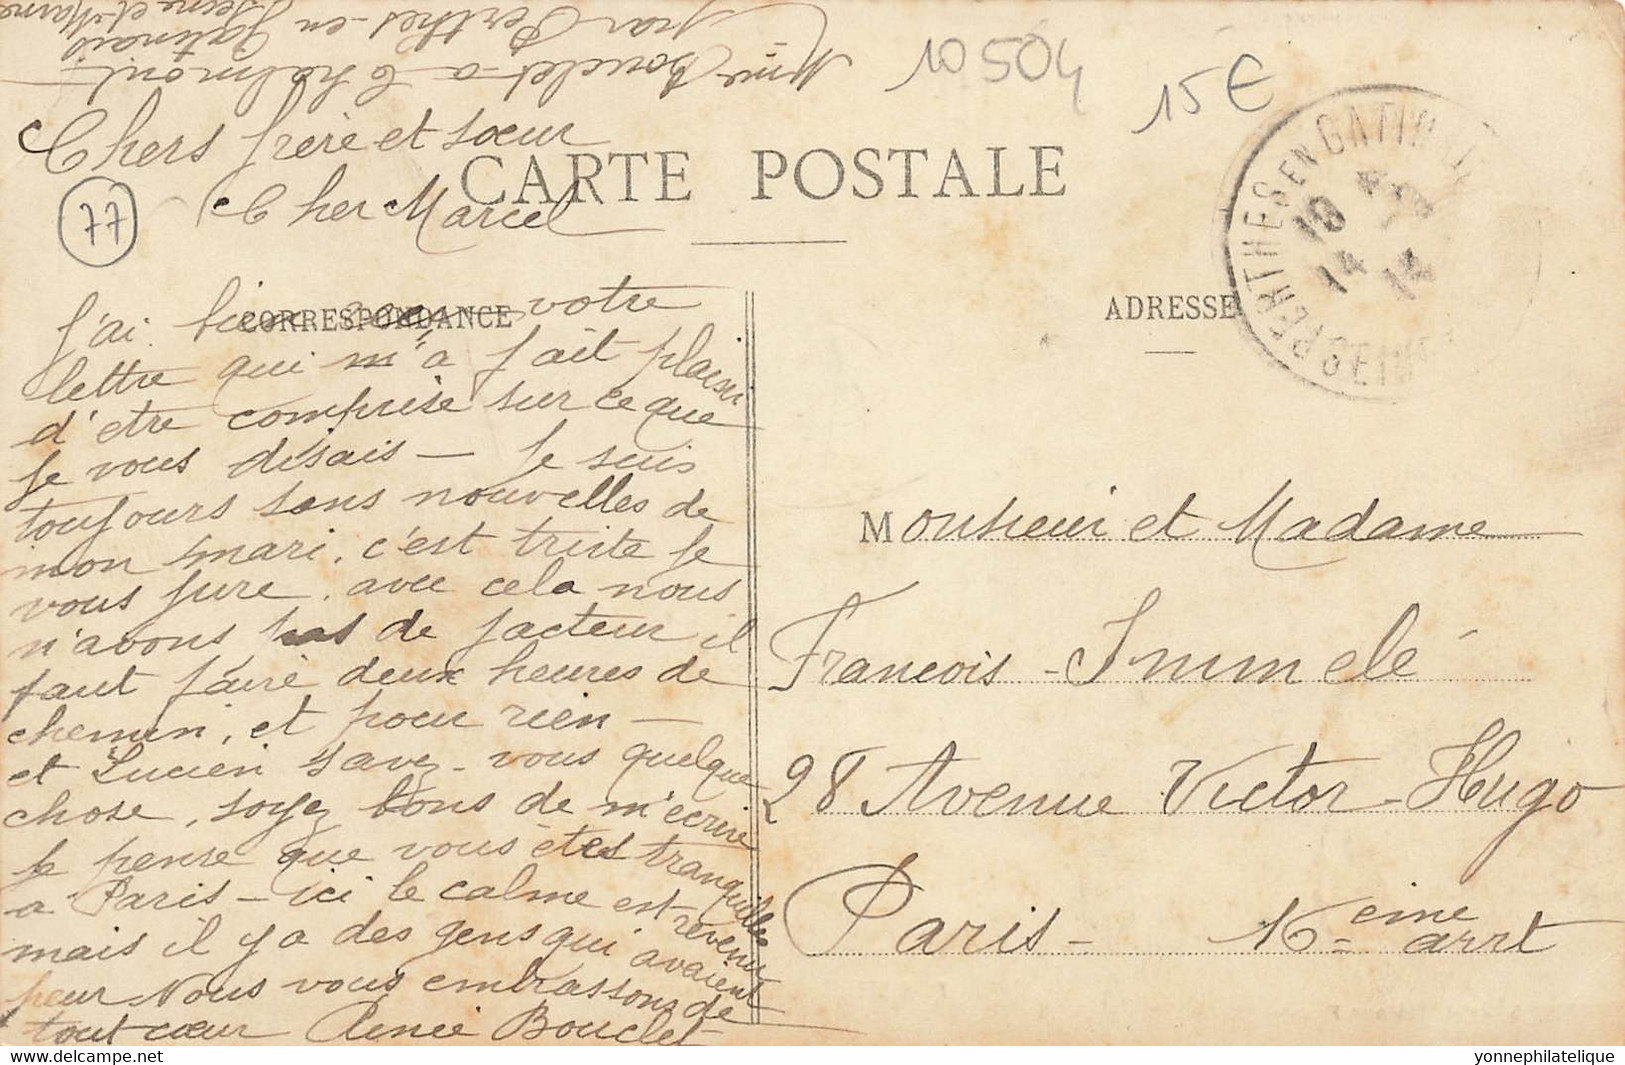 Mme Bouclet a Chalmont
par Perthes-en Gatinais
Seine et Marne
10504
15€
Chers frère et sœur
Cher Marcel
77
CARTE POSTALE
PERTHES EN GATIN
SEINE
10
14 14
CORRESPONDANCE
ADRESSE
J'ai bien votre
lettre qui m'a fait plaisir
d'etre comprise sur ce que
je vous disais - Je suis
toujours sans nouvelles de
mon mari, c'est triste je
vous jure, avec cela nous
n'avons pas de facteur il
faut faire deux heures de
chemin, et pour rien -
et Lucien savez-vous quelque
chose, soyez bons de m'ecrire
je pense que vous êtes tranquilles
a Paris - ici le calme est revenu
mais il y a des gens qui avaient
peur Nous vous embrassons de
tout cœur Renée Bouclet
Monsieur et Madame
François-Immelé
28 Avenue Victor-Hugo
Paris - 16eme arrt
yonnephilatelique